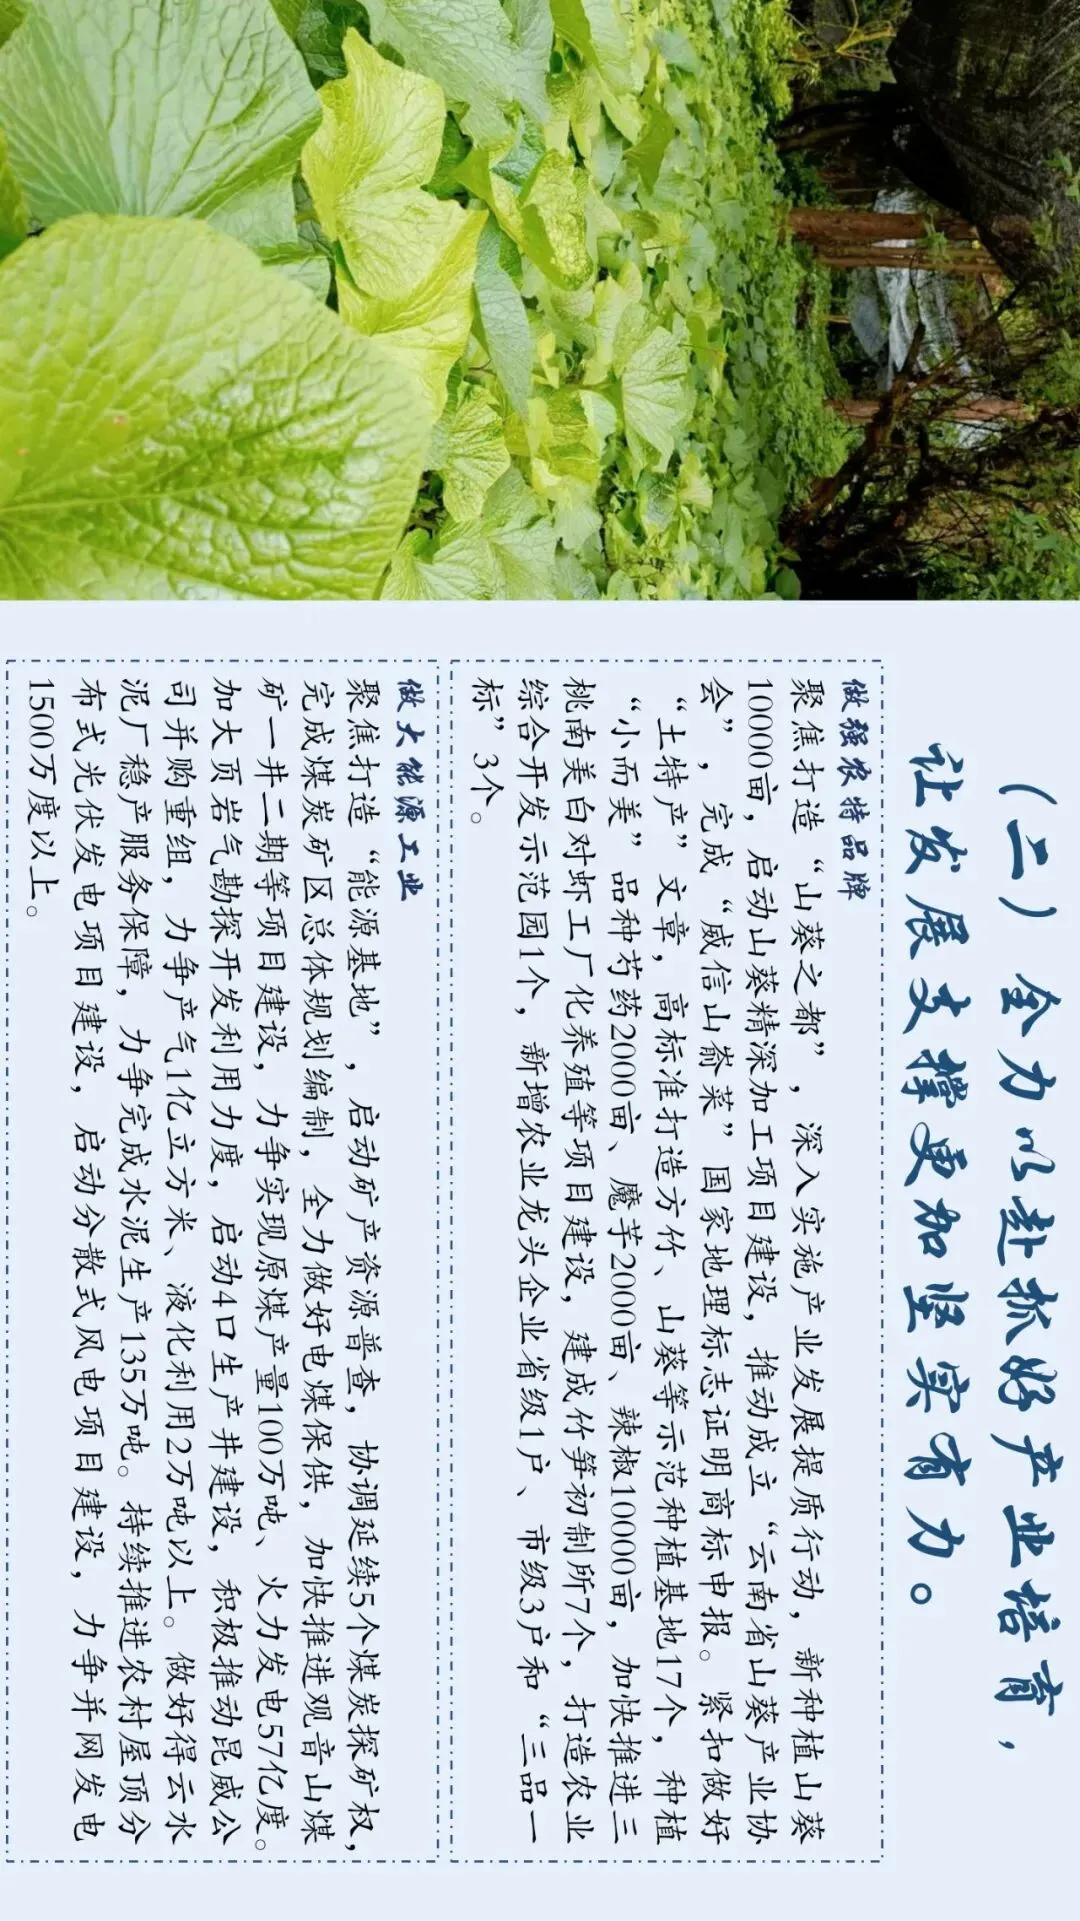 （二）全力以赴抓好产业培育，
让发展支撑更加坚实有力。
做强农特品牌
聚焦打造“山葵之都”，深入实施产业发展提质行动，新种植山葵
10000亩，启动山葵精深加工项目建设，推动成立“云南省山葵产业协
会”，完成“威信山嵛菜”国家地理标志证明商标申报。紧扣做好
“土特产”文章，高标准打造方竹、山葵等示范种植基地17个，种植
“小而美”品种芍药2000亩、魔芋2000亩、辣椒10000亩，加快推进三
桃南美白对虾工厂化养殖等项目建设，建成竹笋初制所7个，打造农业
综合开发示范园1个，新增农业龙头企业省级1户、市级3户和“三品一
标”3个。
做大能源工业
聚焦打造“能源基地”，启动矿产资源普查，协调延续5个煤炭探矿权，
完成煤炭矿区总体规划编制，全力做好电煤保供，加快推进观音山煤
矿一井二期等项目建设，力争实现原煤产量100万吨、火力发电57亿度。
加大页岩气勘探开发利用力度，启动4口生产井建设，积极推动昆威公
司并购重组，力争产气1亿立方米、液化利用2万吨以上。做好得云水
泥厂稳产服务保障，力争完成水泥生产135万吨。持续推进农村屋顶分
布式光伏发电项目建设，启动分散式风电项目建设，力争并网发电
1500万度以上。